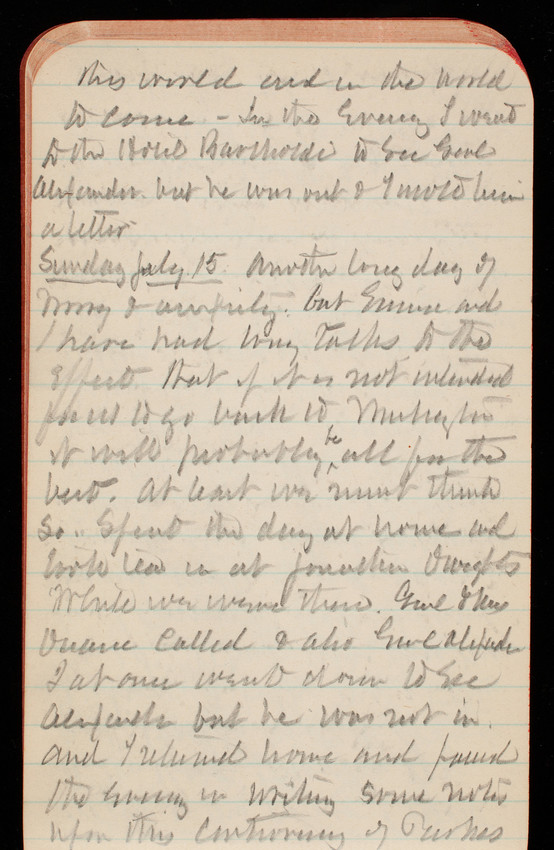 this world and in the world
to come - In the Evening I went
to the Hotel Bartholdi to see Genl
Alexander. but he was out & I wrote him
a letter
Sunday July 15. Another long day of
worry & anxiety. but Emma and
I have had long talks, to the
effect that if it is not intended
for us to go back to Washington
it will probably be all for the
best. At least we must think
so. Spent the day at home and
took tea in at Jonathan Dwights
While we were there. Genl & Mrs
Duane called & also Genl Alexander
I at once went down to see
Alexander but he was not in.
and I returned home and passed
the Evening in writing some notes
upon this controversy of